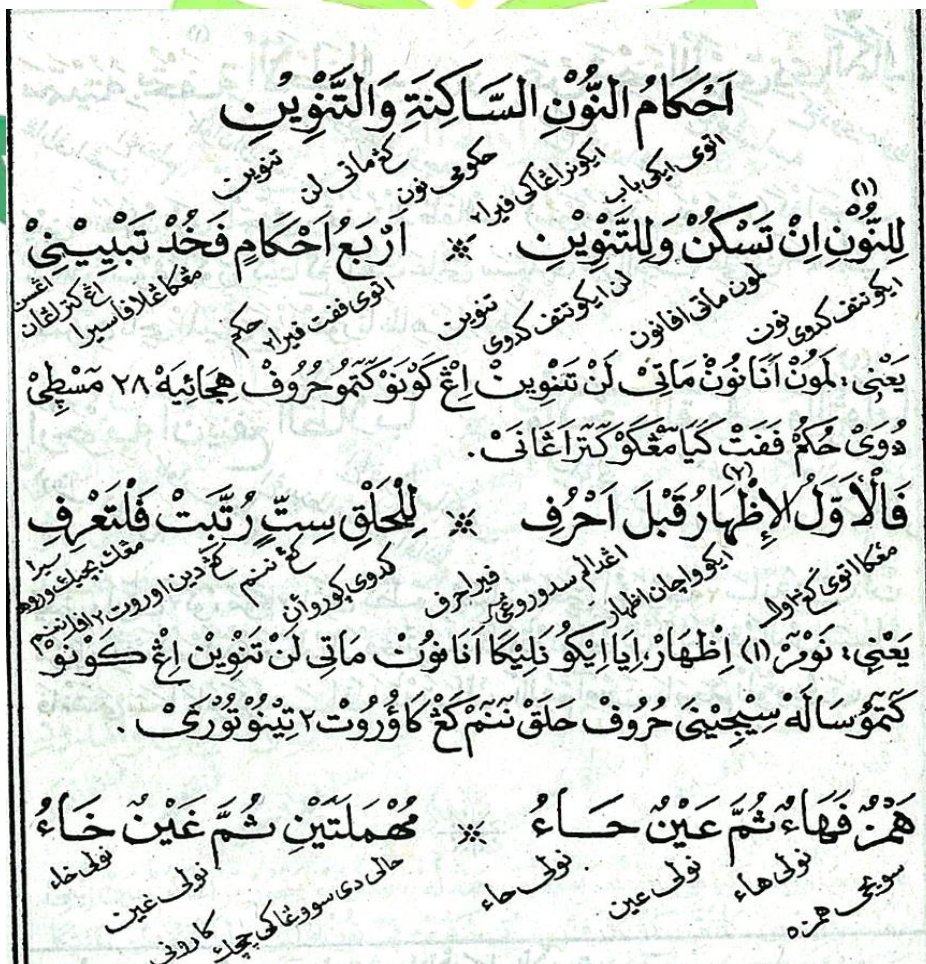 اَحْكَامُ النُّوْنِ السَّاكِنَةِ وَالتَّنْوِيْنِ
اتوى ايكى باب ايكو نراڠاكى فيرا٢ حكومى نون كڠ ماتى لن تنوين
(١)
لِلنُّوْنِ اِنْ تَسْكُنْ وَلِلتَّنْوِيْنِ * اَرْبَعُ اَحْكَامٍ فَخُذْ تَبْيِيْنِيْ
ايكو تتف كدوى نون لمون ماتى افا نون لن ايكو تتف كدوى تنوين اتوى ففت فيرا٢ حكم مڠكا غلافا سيرا اڠ كتراڠان اڠسن
يَعْنِى؛ لَمُوْنْ اَنَا نُوْنْ مَاتِىْ لَنْ تَنْوِيْنْ اِڠْ كَوْنَوْ كَتَمُوْ حُرُوْفْ هِجَائِيَهْ ٢٨ مَسْطِيْ
دُوَىْ حُكُمْ فَفَتْ كَيَا مَڠْكَوْ كَتَرَاڠَانَىْ.
(٢)
فَالْاَوَّلُ الْاِظْهَارُ قَبْلَ اَحْرُفِ * لِلْحَلْقِ سِتٌّ رُتِّبَتْ فَلْتَعْرِفِ
مڠكا اتوى كڠ اول ايكو واچان اظهار اڠدالم سدوروڠى فيرا حرف كدوى ڬوروان كڠ ننم كڠ دين اوروت٢ افا ننم سيرا
يَعْنِى؛ نَوْمَرْ (١) اِظْهَارْ، اِيَا اِيْكُوْ نَلِيْكَا اَنَا نُوْنْ مَاتِى لَنْ تَنْوِيْن اِڠْ كَوْنَوْ
كَتَمُوْ سَالَهْ سِيْجِيْنَىْ حُرُوْفْ حَلَقْ نَنَمْ كَڠْ كَاؤُرُوْتْ٢ تِيْنُوْتُوْرَىْ.
هَمْزٌ فَهَاءٌ ثُمَّ عَيْنٌ حَاءُ * مُهْمَلَتَيْنِ ثُمَّ غَيْنٌ خَاءُ
سويجى همزه نولى هاء نولى عين نولى حاء حالى دى سووڠاكى چچك كارونى نولى غين نولى خاء